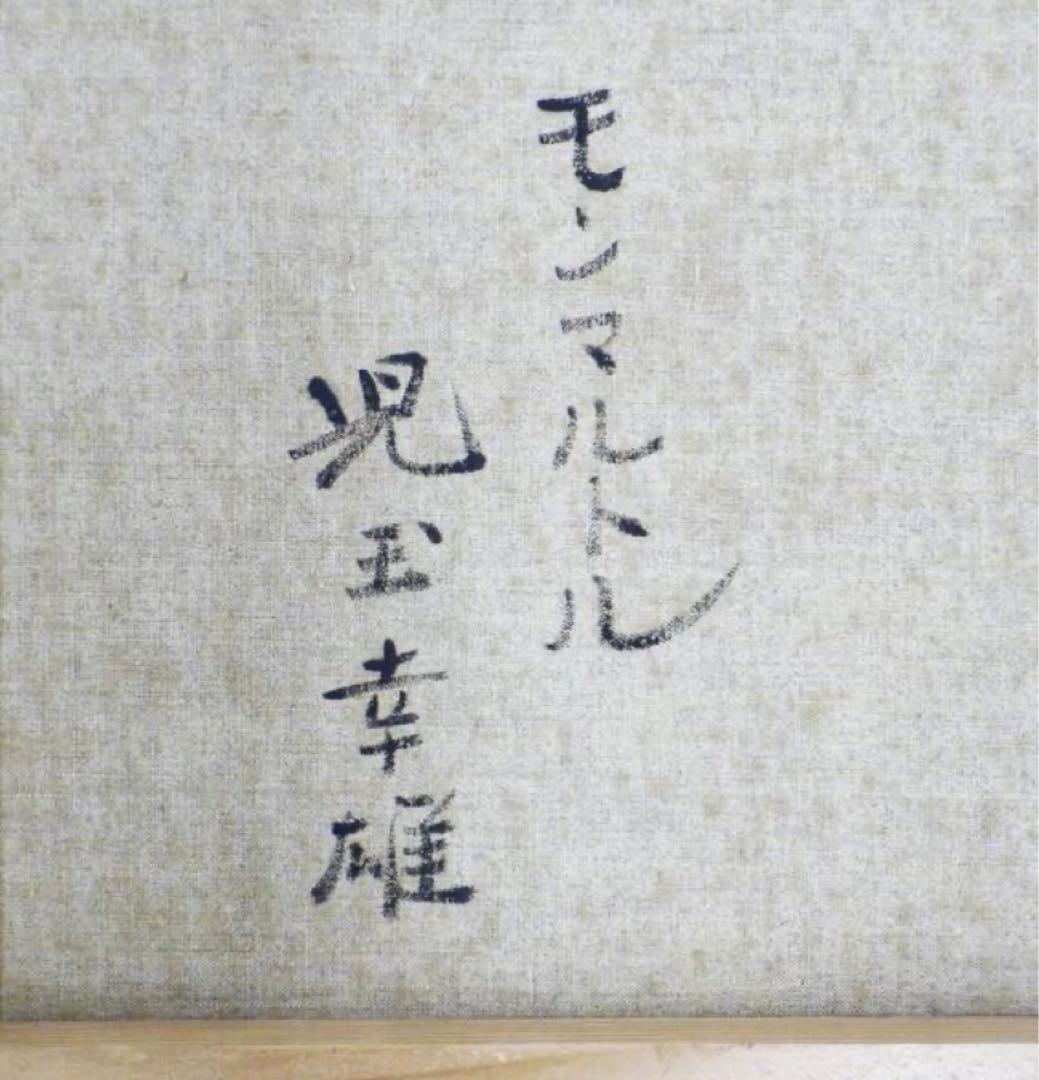 モンマルトル
児玉幸雄